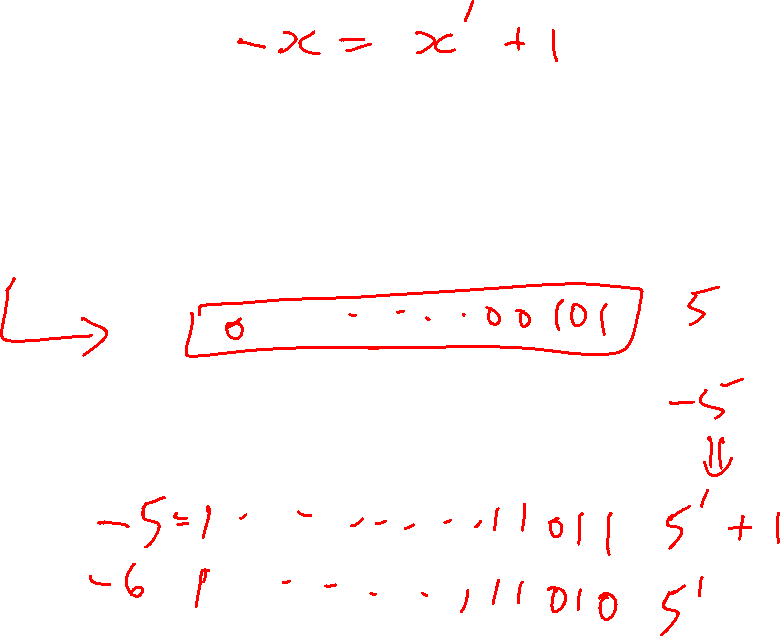 -x = x' + 1
0 . . . . . 0 0 1 0 1 5
-5
-5 = 1 . . . . . . . . , 1 1 0 1 1 5' + 1
-6 1 . . . . , 1 1 0 1 0 5'